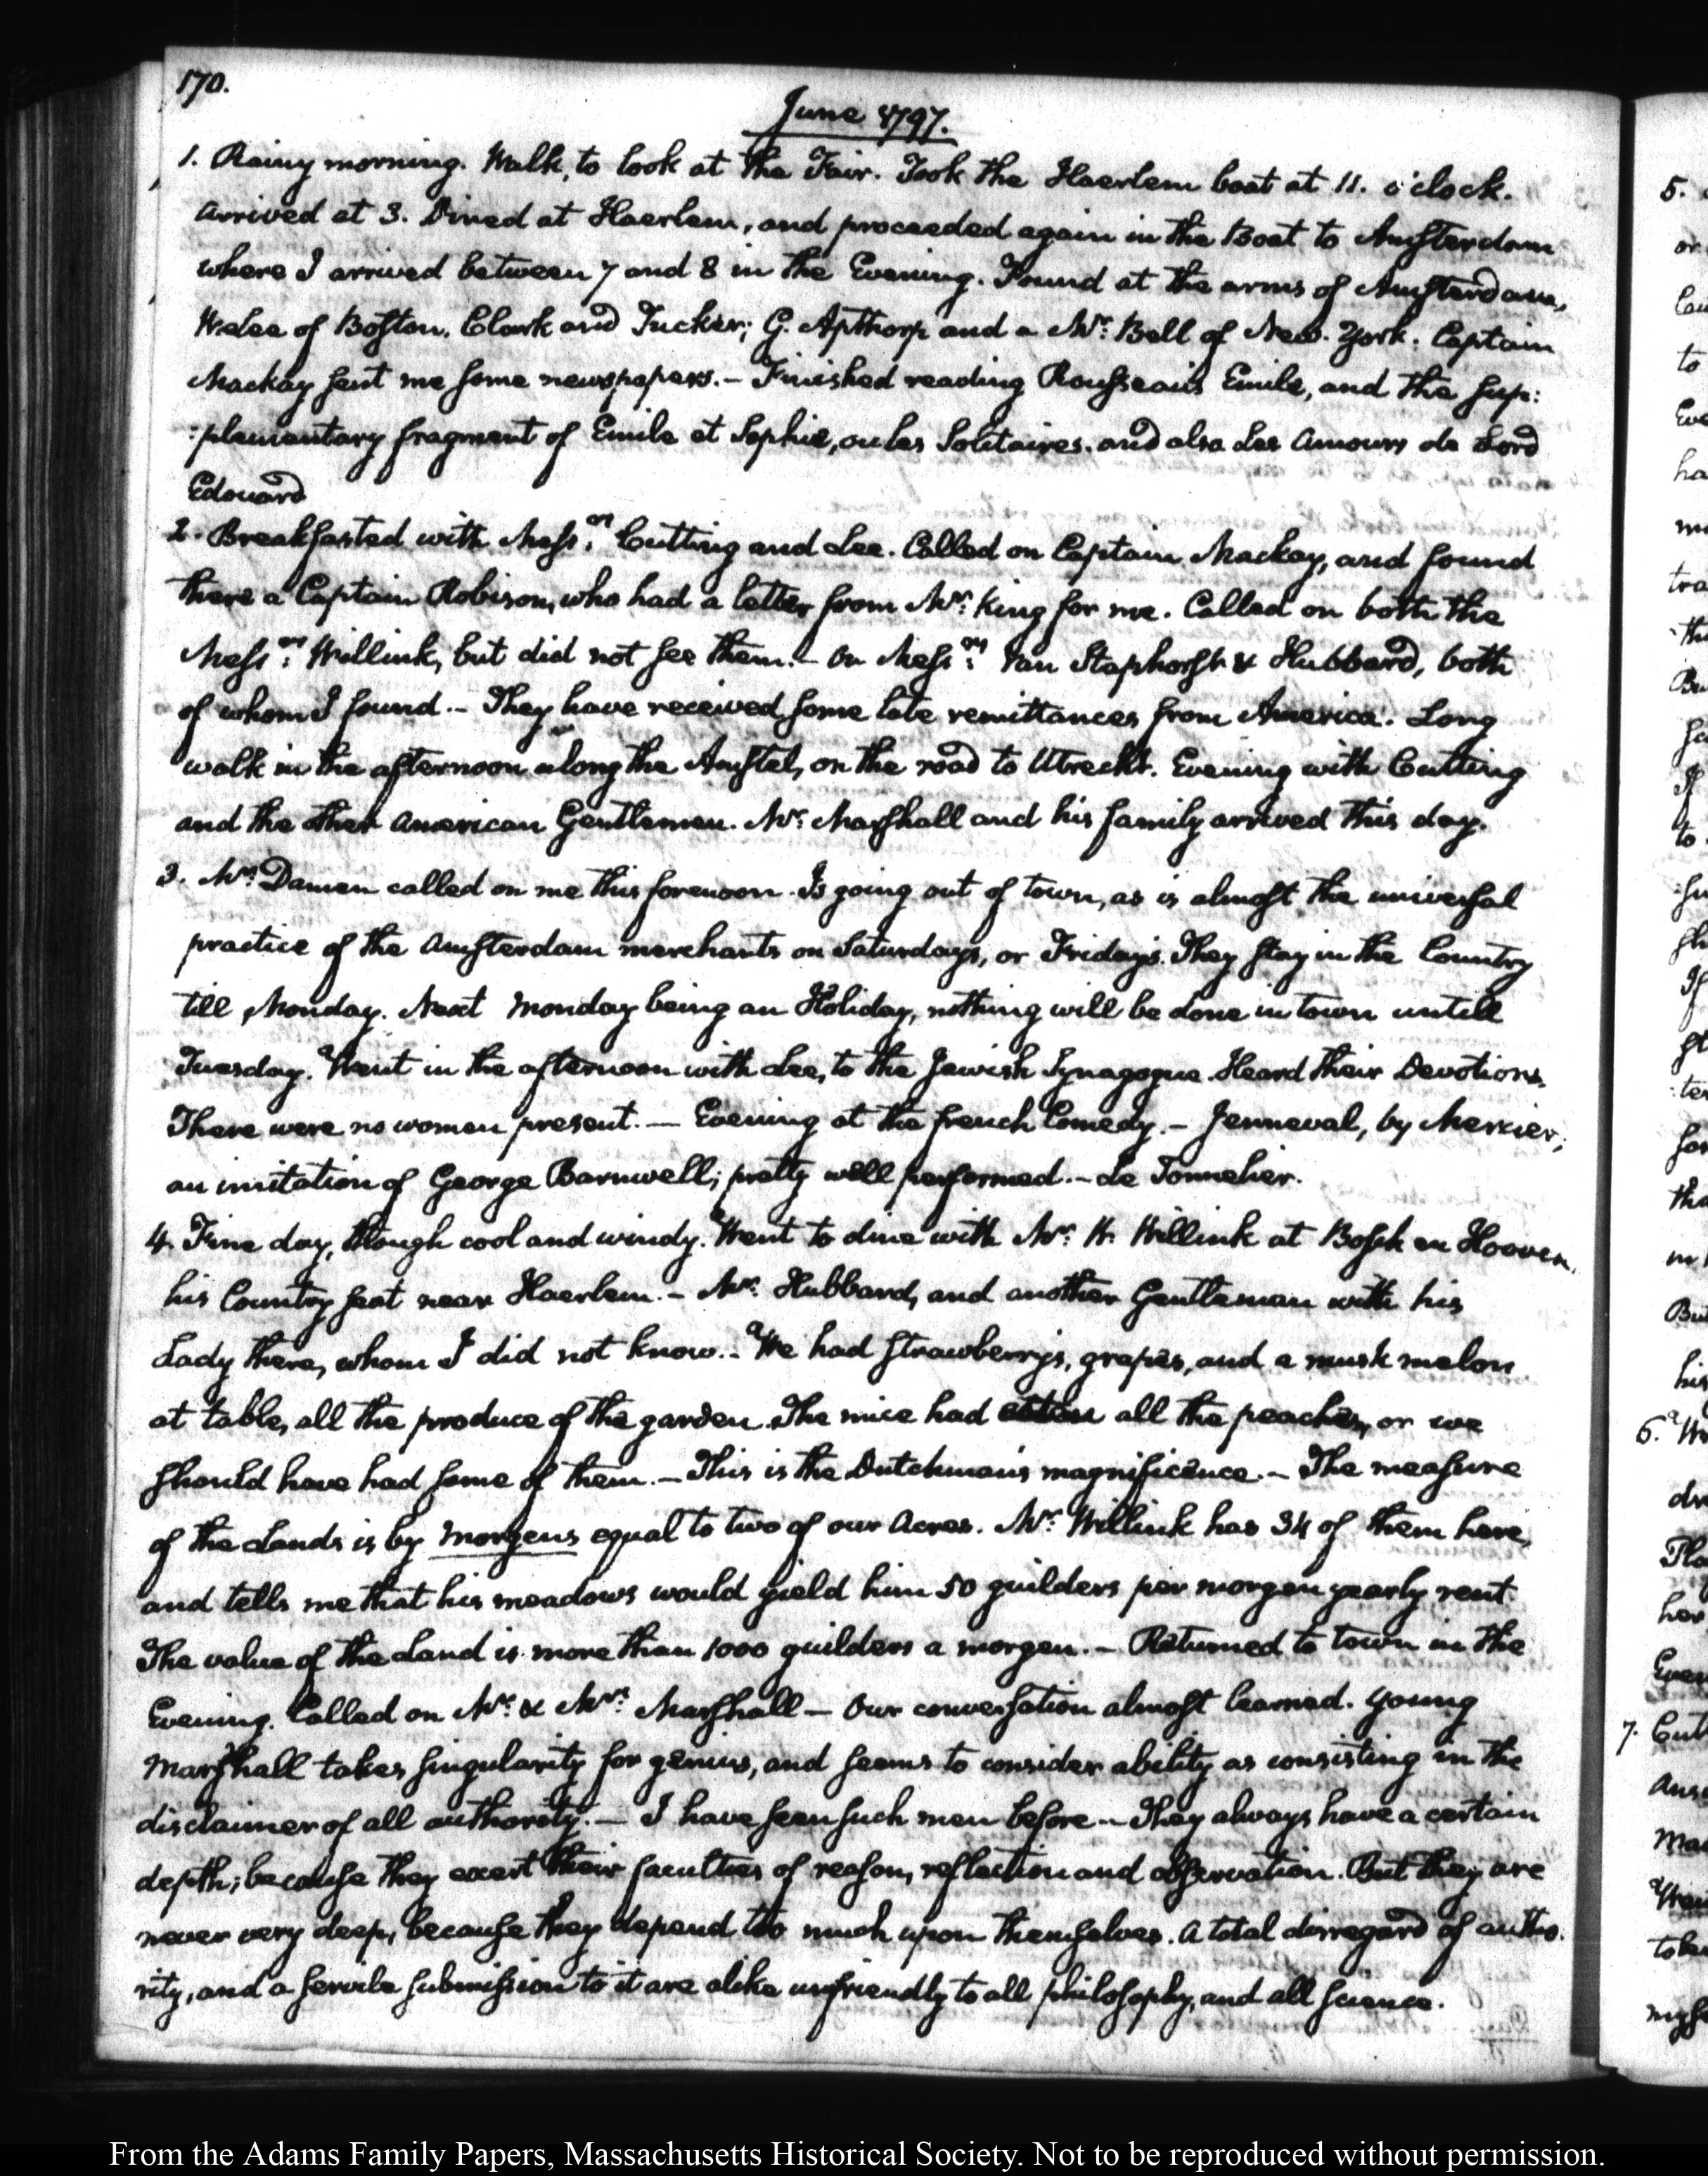 170.
June 1797.
1. Rainy morning. Walk, to look at the Fair. Took the Haerlem boat at 11. o'clock.
arrived at 3. Dined at Haerlem, and proceeded again in the Boat to Amsterdam
where I arrived between 7 and 8 in the Evening. Found at the arms of Amsterdam,
W. Lee of Boston. Clark and Tucker; G. Apthorp and a Mr. Bell of New-York. Captain
Mackay sent me some newspapers.— Finished reading Rousseau's Emile, and the sup:
:plementary fragment of Emile et Sophie, ou les Solitaires. and also Les Amours de Lord
Edouard
2. Breakfasted with Messrs. Cutting and Lee. Called on Captain Mackay, and found
there a Captain Robison, who had a letter from Mr. King for me. Called on both the
Messrs. Willink, but did not see them.— On Messrs. Van Staphorst & Hubbard, both
of whom I found.— They have received some late remittances from America. Long
walk in the afternoon along the Amstel, on the road to Utrecht. Evening with Cutting
and the other American Gentlemen. Mr. Marshall and his family arrived this day.
3. Mr. Damen called on me this forenoon. Is going out of town, as is almost the universal
practice of the Amsterdam merchants on Saturdays, or Fridays. They stay in the Country
till Monday. Next Monday being an Holiday, nothing will be done in town untill
Tuesday. Went in the afternoon with Lee, to the Jewish Synagogue. Heard their Devotions.
There were no women present.— Evening at the french Comedy.— Jenneval, by Mercier,
an imitation of George Barnwell; pretty well performed.— Le Tonnelier.
4. Fine day, though cool and windy. Went to dine with Mr. W. Willink at Bosch en Hooven.
his Country seat near Haerlem.— Mr. Hubbard, and another Gentleman with his
Lady there, whom I did not know.— We had strawberrys, grapes, and a musk melon
at table, all the produce of the garden. The mice had eaten all the peaches, or we
should have had some of them.— This is the Dutchman's magnificence.— The measure
of the Lands is by morgens equal to two of our Acres. Mr. Willink has 34 of them here,
and tells me that his meadows would yield him 50 guilders per morgen yearly rent.
The value of the Land is more than 1000 guilders a morgen.— Returned to town in the
Evening. Called on Mr. & Mrs. Marshall— Our conversation almost learned. Young
Marshall takes singularity for genius, and seems to consider ability as consisting in the
disclaimer of all authority.— I have seen such men before— They always have a certain
depth; because they exert their faculties of reason, reflection and observation. But they are
never very deep, because they depend too much upon themselves. A total disregard of autho.
rity, and a servile submission to it are alike unfriendly to all philosophy, and all science.
5.
or
to
Eve
ha
tra
Bu
to
6. We
7. Cut
From the Adams Family Papers, Massachusetts Historical Society. Not to be reproduced without permission.